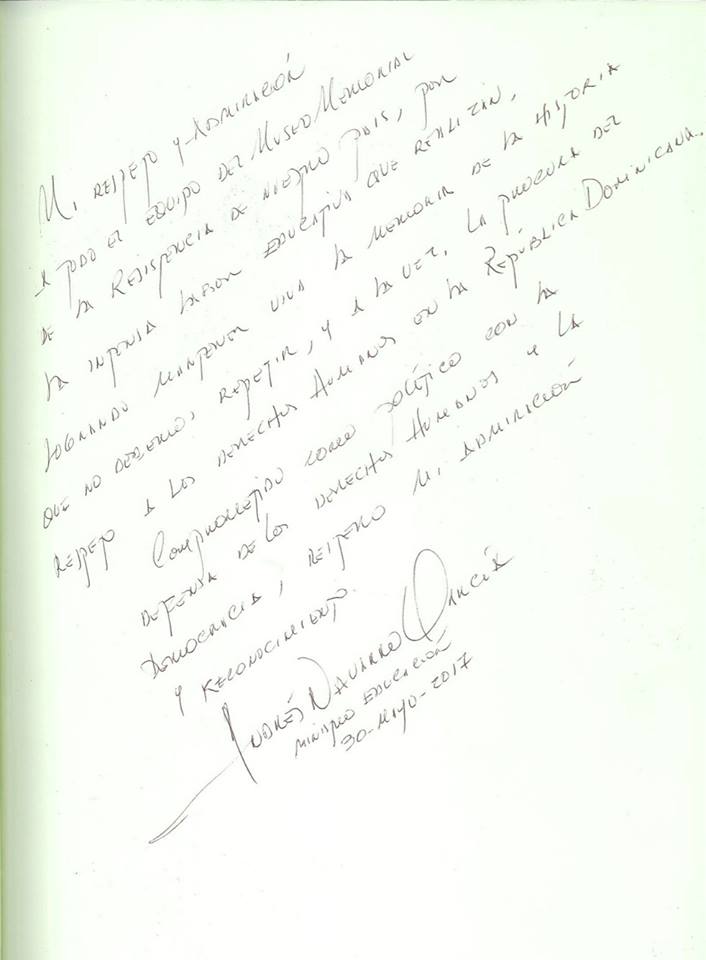 Mi respeto y admiración
a todo el equipo del Museo Memorial
de la Resistencia de nuestro país, por
la intensa labor educativa que realizan,
logrando mantener viva la memoria de la historia
que no debemos repetir, y a la vez, la procura del
respeto a los derechos humanos en la República Dominicana.
Comprometido como político con la
defensa de los derechos humanos y la
democracia, reitero mi admiración
y reconocimiento.
Andrés Navarro García
Ministro Educación
30-Mayo-2017